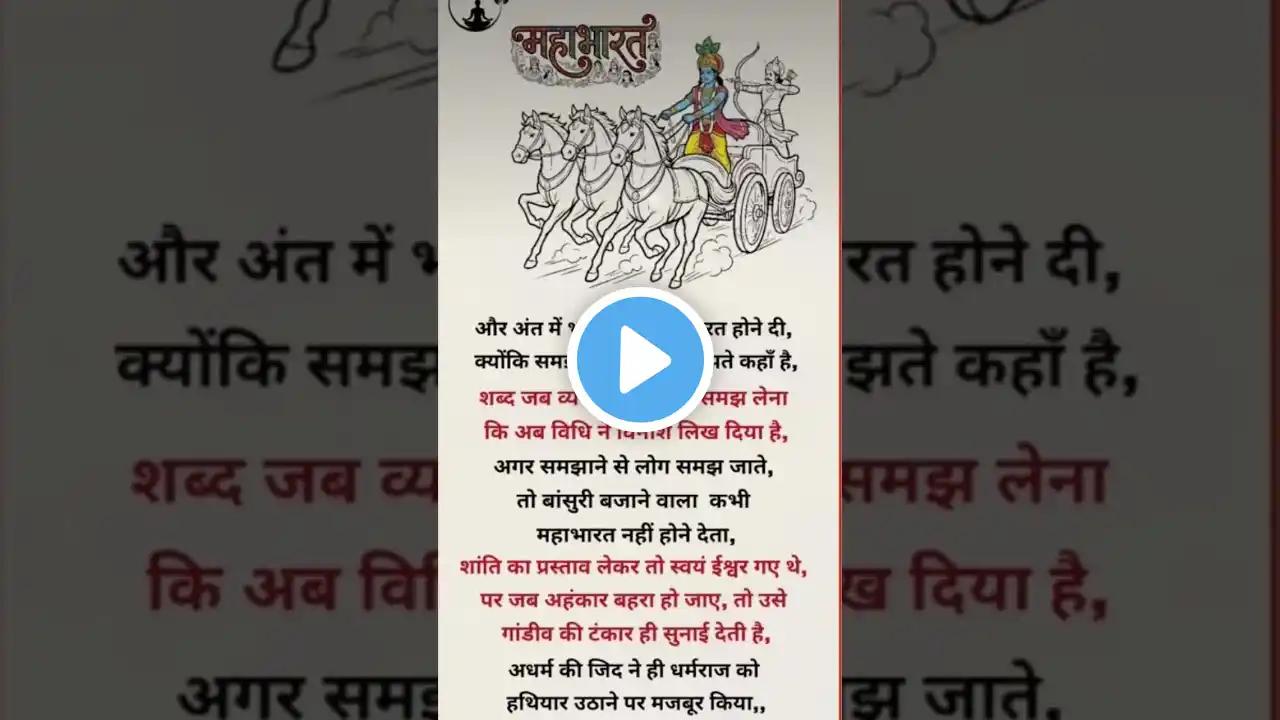 महाभारत
और अंत में होने दी,
क्योंकि कहाँ है,
शब्द जब समझ लेना
कि अब विधि ने विनाश लिख दिया है,
अगर समझाने से लोग समझ जाते,
तो बांसुरी बजाने वाला कभी
महाभारत नहीं होने देता,
शांति का प्रस्ताव लेकर तो स्वयं ईश्वर गए थे,
पर जब अहंकार बहरा हो जाए, तो उसे
गांडीव की टंकार ही सुनाई देती है,
अधर्म की जिद ने ही धर्मराज को
हथियार उठाने पर मजबूर किया,,